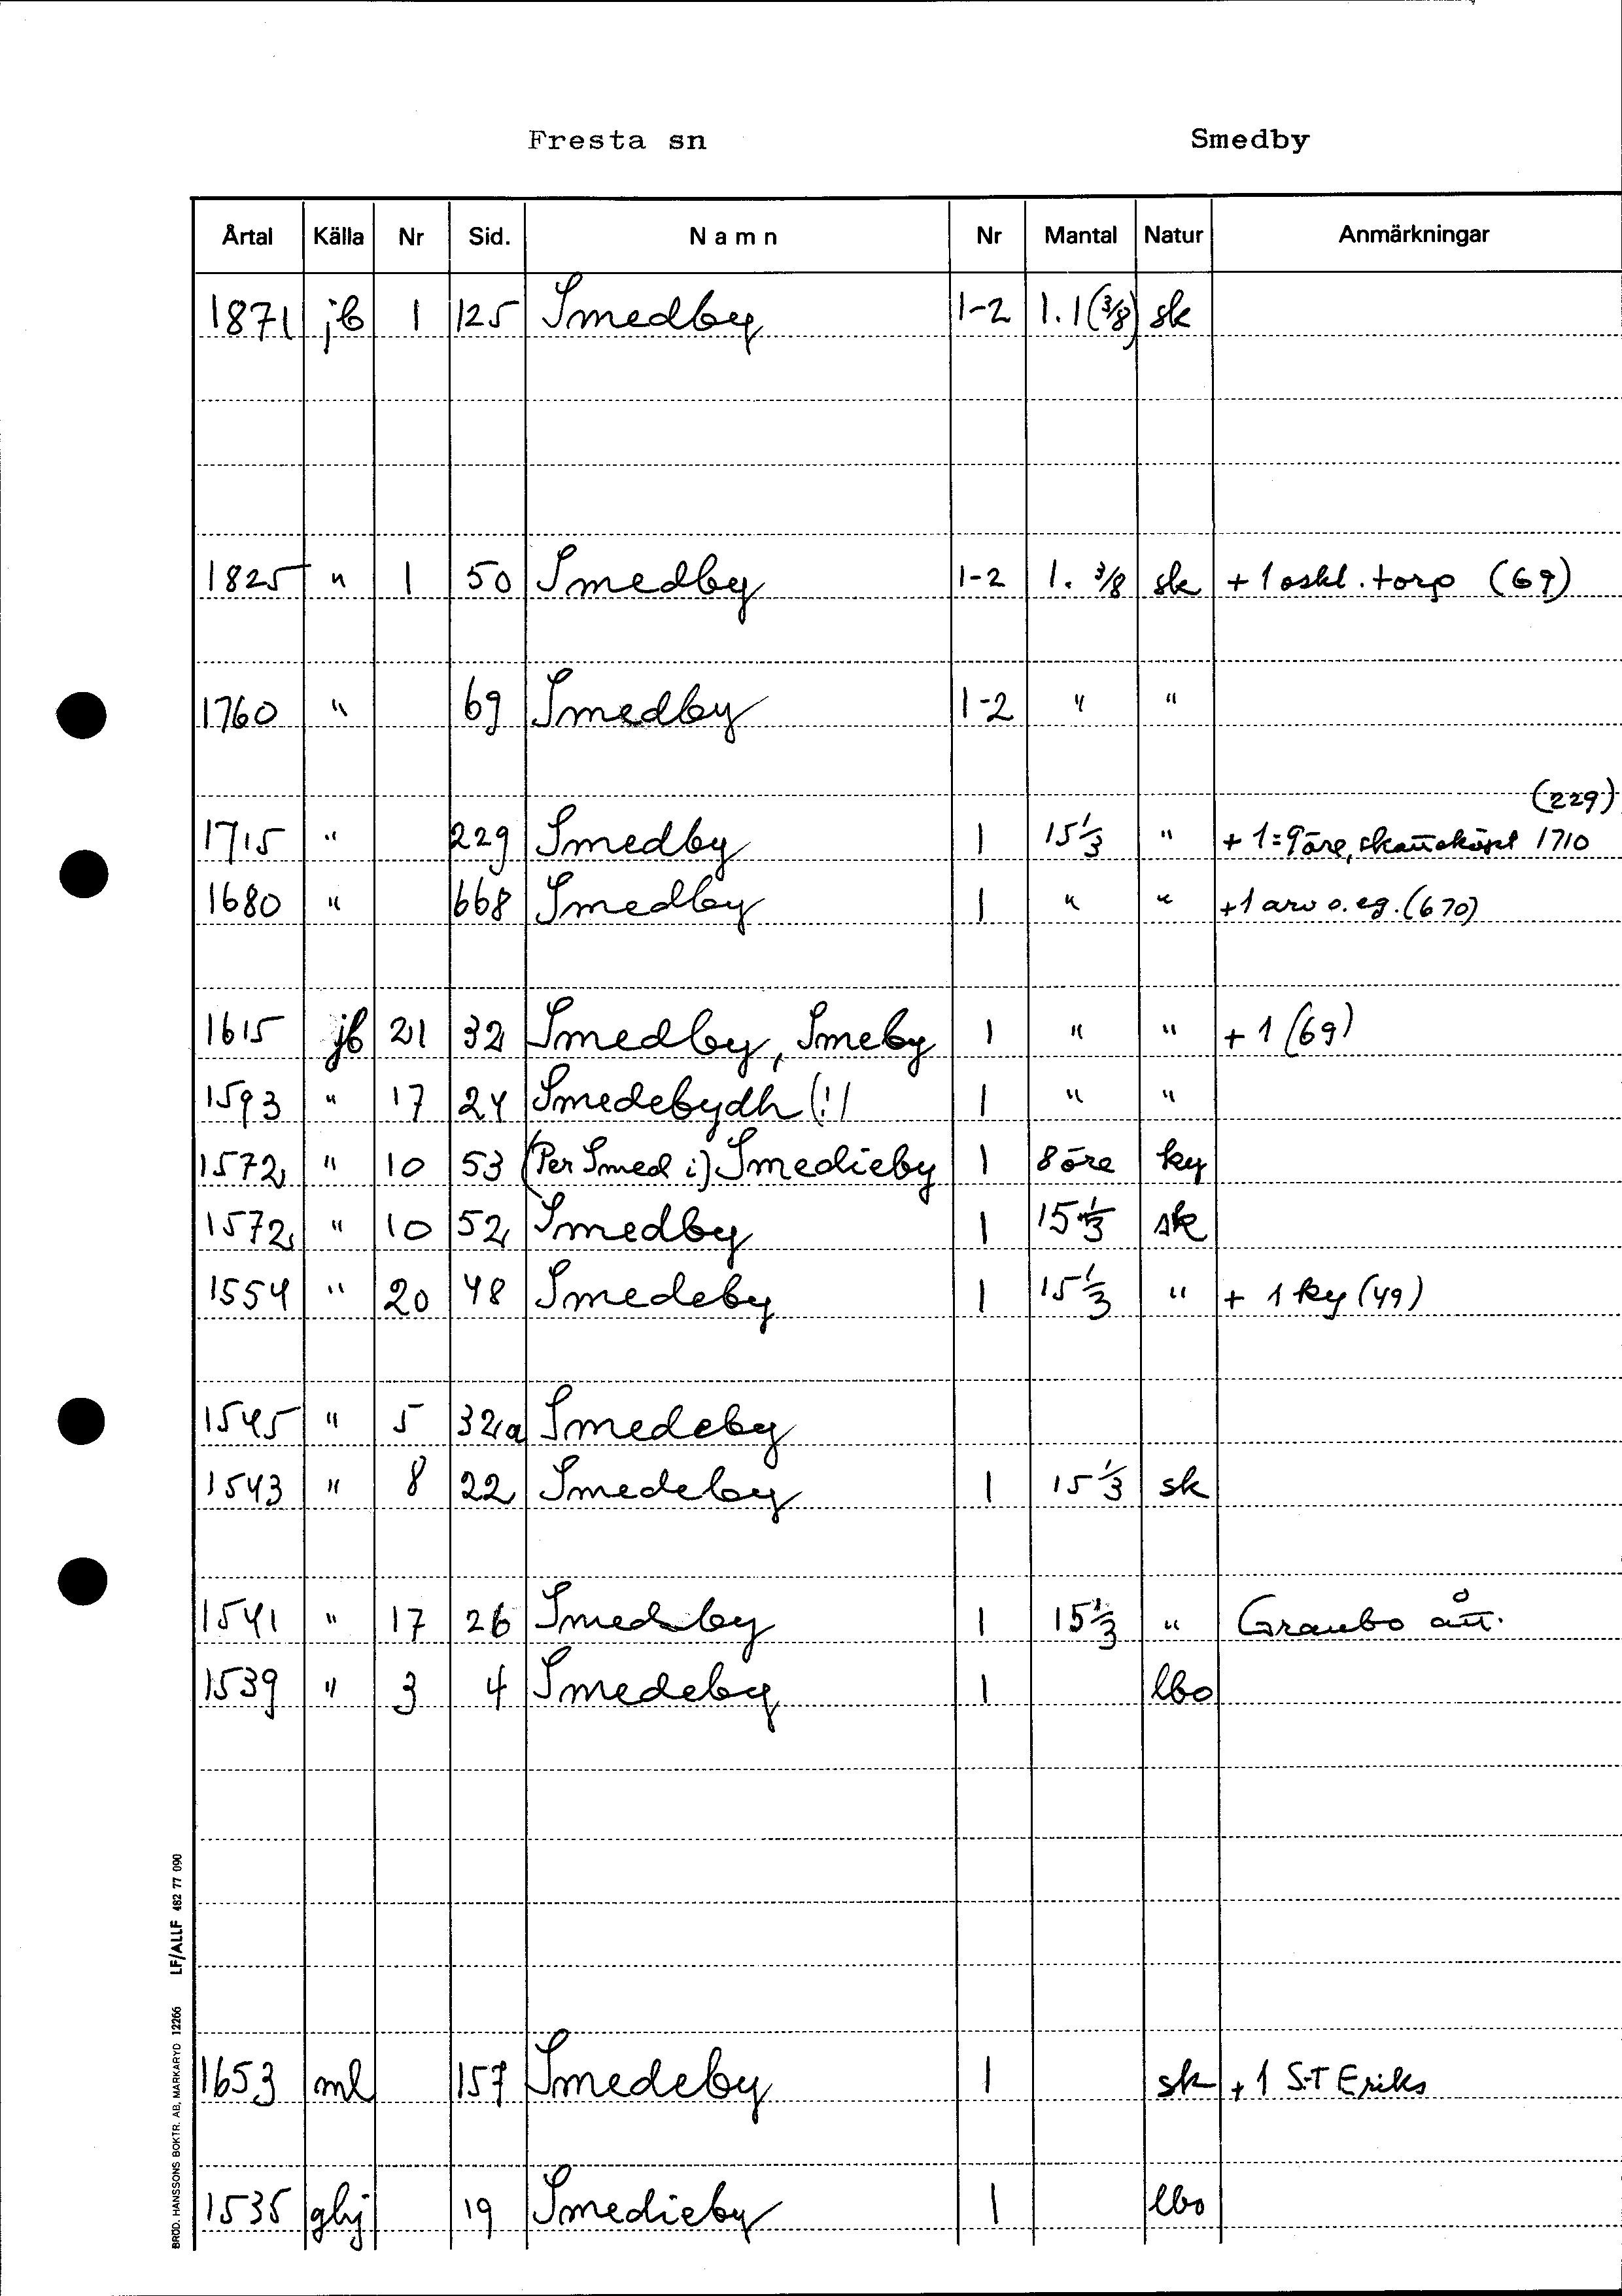 Fresta sn Smedby
Årtal Källa Nr Sid. Namn Nr Mantal Natur Anmärkningar
1871 jb 1 125 Smedby 1-2 1.1(3/8) sk
1825 " 1 50 Smedby 1-2 1. 3/8 sk + 1 oskl. torp (69)
1760 " 69 Smedby 1-2 " "
(229)
1715 " 229 Smedby 1 15 1/3 " + 1=9 öre, 1710
1680 " 668 Smedby 1 " " +1 arv o. eg. (670)
1615 jb 21 32 Smedby, Smeby 1 " " + 1 (69)
1593 " 17 24 Smedebydh (!) 1 " "
1572 " 10 53 (Per Smed i) Smedieby 1 8 öre ky
1572 " 10 52 Smedby 1 15 1/3 sk
1554 " 20 48 Smedeby 1 15 1/3 " + 1 ky (49)
1545 " 5 32a Smedeby
1543 " 8 22 Smedeby 1 15 1/3 sk
1541 " 17 26 Smedeby 1 15 1/3 " Granbo
1539 " 3 4 Smedeby 1 lbo
1653 ml 157 Smedeby 1 sk + 1 S:T Eriks
1535 ghj 19 Smedieby 1 lbo
BRÖD. HANSSONS BOKTR. AB, MARKARYD 12266 LF/ALLF 482 77 090